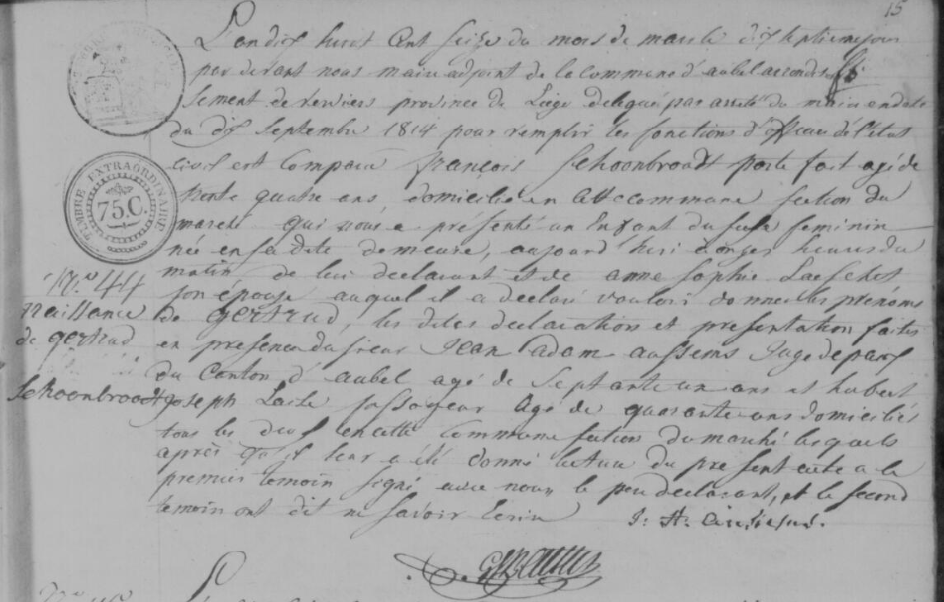 15
L'an dix huit cent seize du mois de mars le dix septieme jour
par devant nous maire adjoint de la commune d'aubel arrondis
sement de verviers province de Liège delegué par arreté du maire en date
du dix Septembre 1814 pour remplir les fonctions d'officier de l'état
civil est Comparu françois Schoonbroodt porte faix agé de
trente quatre ans, domicilié en cette commune section du
marché qui nous a présenté un Enfant du sexe feminin
née en sa dite demeure, aujourd hui à onze heures du
matin de lui declarant et de anne Sophie
son épouse auquel il a declaré vouloir donner les prénoms
de gertrud, les dites declaration et presentation faites
en presence du sieur Jean adam aussems Juge de paix
du Canton d'aubel agé de Septante un ans et hubert
joseph agé de quarante ans domiciliés
tous les deux en cette Commune section du marché lesquels
après qu'il leur a été donné lecture du present acte a le
premier temoin signé avec nous le pere declarant, et le second
temoin ont dit ne savoir Ecrire
TIMBRE EXTRAORDINAIRE
75.C.
N.º 44
naissance
de gertrud
Schoonbroodt